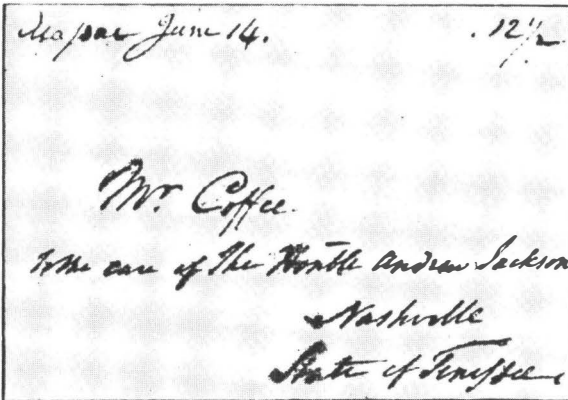 June 14. .12½
Mr Coffee
to the care of The Honble Andrew Jackson
Nashville
State of Tenessee